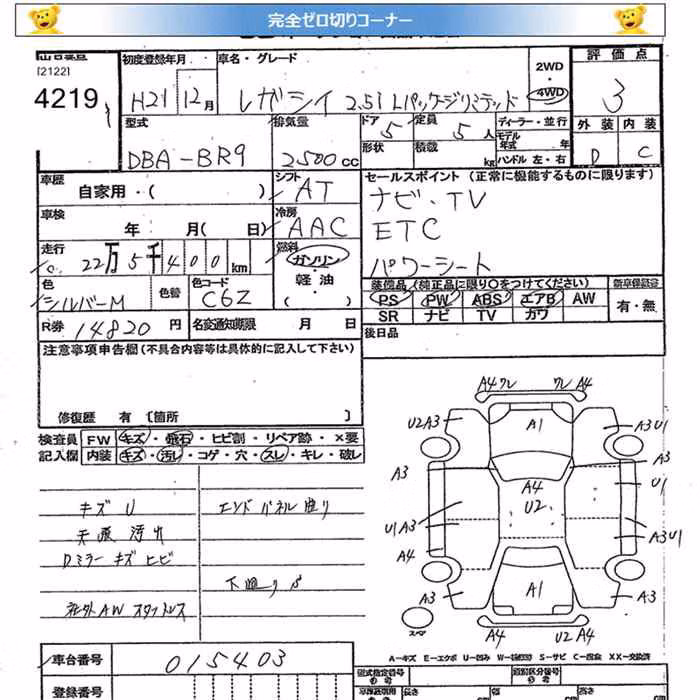 完全ゼロ切りコーナー
[2122]
4219
初度登録年月 車名・グレード
H21 12月 レガシィ 2.5i Lパッケージリミテッド
2WD・4WD
評価点
3
外装 内装
D C
型式 排気量
DBA-BR9 2500cc
ドア 5 定員 5人
形状 積載 kg
ディーラー・並行
モデル年式 年
ハンドル 左・右
車歴 自家用・( )
シフト AT
車検 年 月( 日)
冷房 AAC
走行 22万5千400km
燃料 ガソリン・軽油・( )
色 シルバーM 色替
色コード C6Z
R券 14820円 名変通知期限 月 日
セールスポイント (正常に機能するものに限ります)
ナビ・TV
ETC
パワーシート
装備品(純正品に限り○をつけてください)
PS PW ABS エアB AW
SR ナビ TV カワ
新車保証書
有・無
後日品
注意事項申告欄(不具合内容等は具体的に記入して下さい)
修復歴 有〔箇所 〕
検査員記入欄
FW キズ・飛石・ヒビ割・リペア跡・×要
内装 キズ・汚レ・コゲ・穴・スレ・キレ・破レ
キズ U
エンドパネル曲り
Dミラー キズ ヒビ
下廻りS
社外AW スタットレス
A4ワレ ワレA4
U2A3 A1 A3U1
A3 A3
A4 U2 U1
U1A3 A3U1
A4
A3 A1 A3
スペア
A4 U2A4
A-キズ E-エクボ U-凹み W-補修跡 S-サビ C-腐食 XX-交換済
車台番号 015403
登録番号
型式指定番号 類別区分番号
長さ cm 幅 高さ